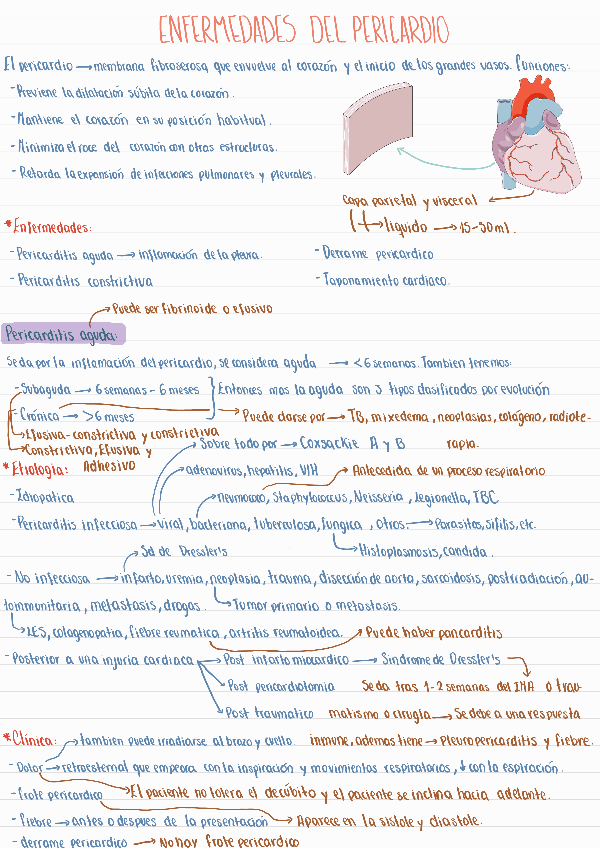 ENFERMEDADES DEL PERICARDIO
El pericardio → membrana fibroserosa que envuelve al corazón y el inicio de los grandes vasos. Funciones:
- Previene la dilatación súbita de la corazón.
- Mantiene el corazón en su posición habitual.
- Minimiza el roce del corazón con otras estructuras.
- Retarda la expansión de infecciones pulmonares y pleurales.
Capa parietal y visceral
↳ líquido → 15-50 ml.
*Enfermedades:
- Pericarditis aguda → inflamación de la pleura.
- Derrame pericardico
- Pericarditis constrictiva
- Taponamiento cardiaco.
→ Puede ser fibrinoide o efusivo
Pericarditis aguda:
Se da por la inflamación del pericardio, se considera aguda → <6 semanas. Tambien tenemos:
- Subaguda → 6 semanas - 6 meses } Entonces mas la aguda son 3 tipos clasificados por evolución
- Crónica → >6 meses → Puede darse por → TB, mixedema, neoplasias, colágeno, radiote-
rapia.
→ Efusiva-constrictiva y constrictiva
→ Constrictiva, Efusiva y
Adhesivo
→ Sobre todo por → Coxsackie A y B
*Etiología:
→ adenovirus, hepatitis, VIH → Antecedida de un proceso respiratorio
- Idiopatica
→ neumococo, Staphylococcus, Neisseria, legionella, TBC
- Pericarditis infecciosa → viral, bacteriana, tuberculosa, fungica, otros. → Parasitos, sifilis, etc.
→ Sd de Dressler's
→ Histoplasmosis, candida.
- No infecciosa → infarto, uremia, neoplasia, trauma, disección de aorta, sarcoidosis, postradiación, au-
toinmunitaria, metastasis, drogas. → Tumor primario o metastasis.
→ LES, colagenopatia, fiebre reumatica, artritis reumatoidea. → Puede haber pancarditis
- Posterior a una injuria cardiaca → Post infarto miocardico → Sindrome de Dressler's
→ Post pericardiotomia
Se da tras 1-2 semanas del IMA o trau-
→ Post traumatico
matismo o cirugía → Se debe a una respuesta
inmune, ademas tiene → Pleuropericarditis y fiebre.
*Clínica: → tambien puede irradiarse al brazo y cuello.
- Dolor → retroesternal que empeora con la inspiración y movimientos respiratorios, ↓ con la espiración.
- frote pericardico → El paciente no tolera el decúbito y el paciente se inclina hacia adelante.
- fiebre → antes o despues de la presentación → Aparece en la sistole y diastole.
- derrame pericardico → No hay frote pericardico